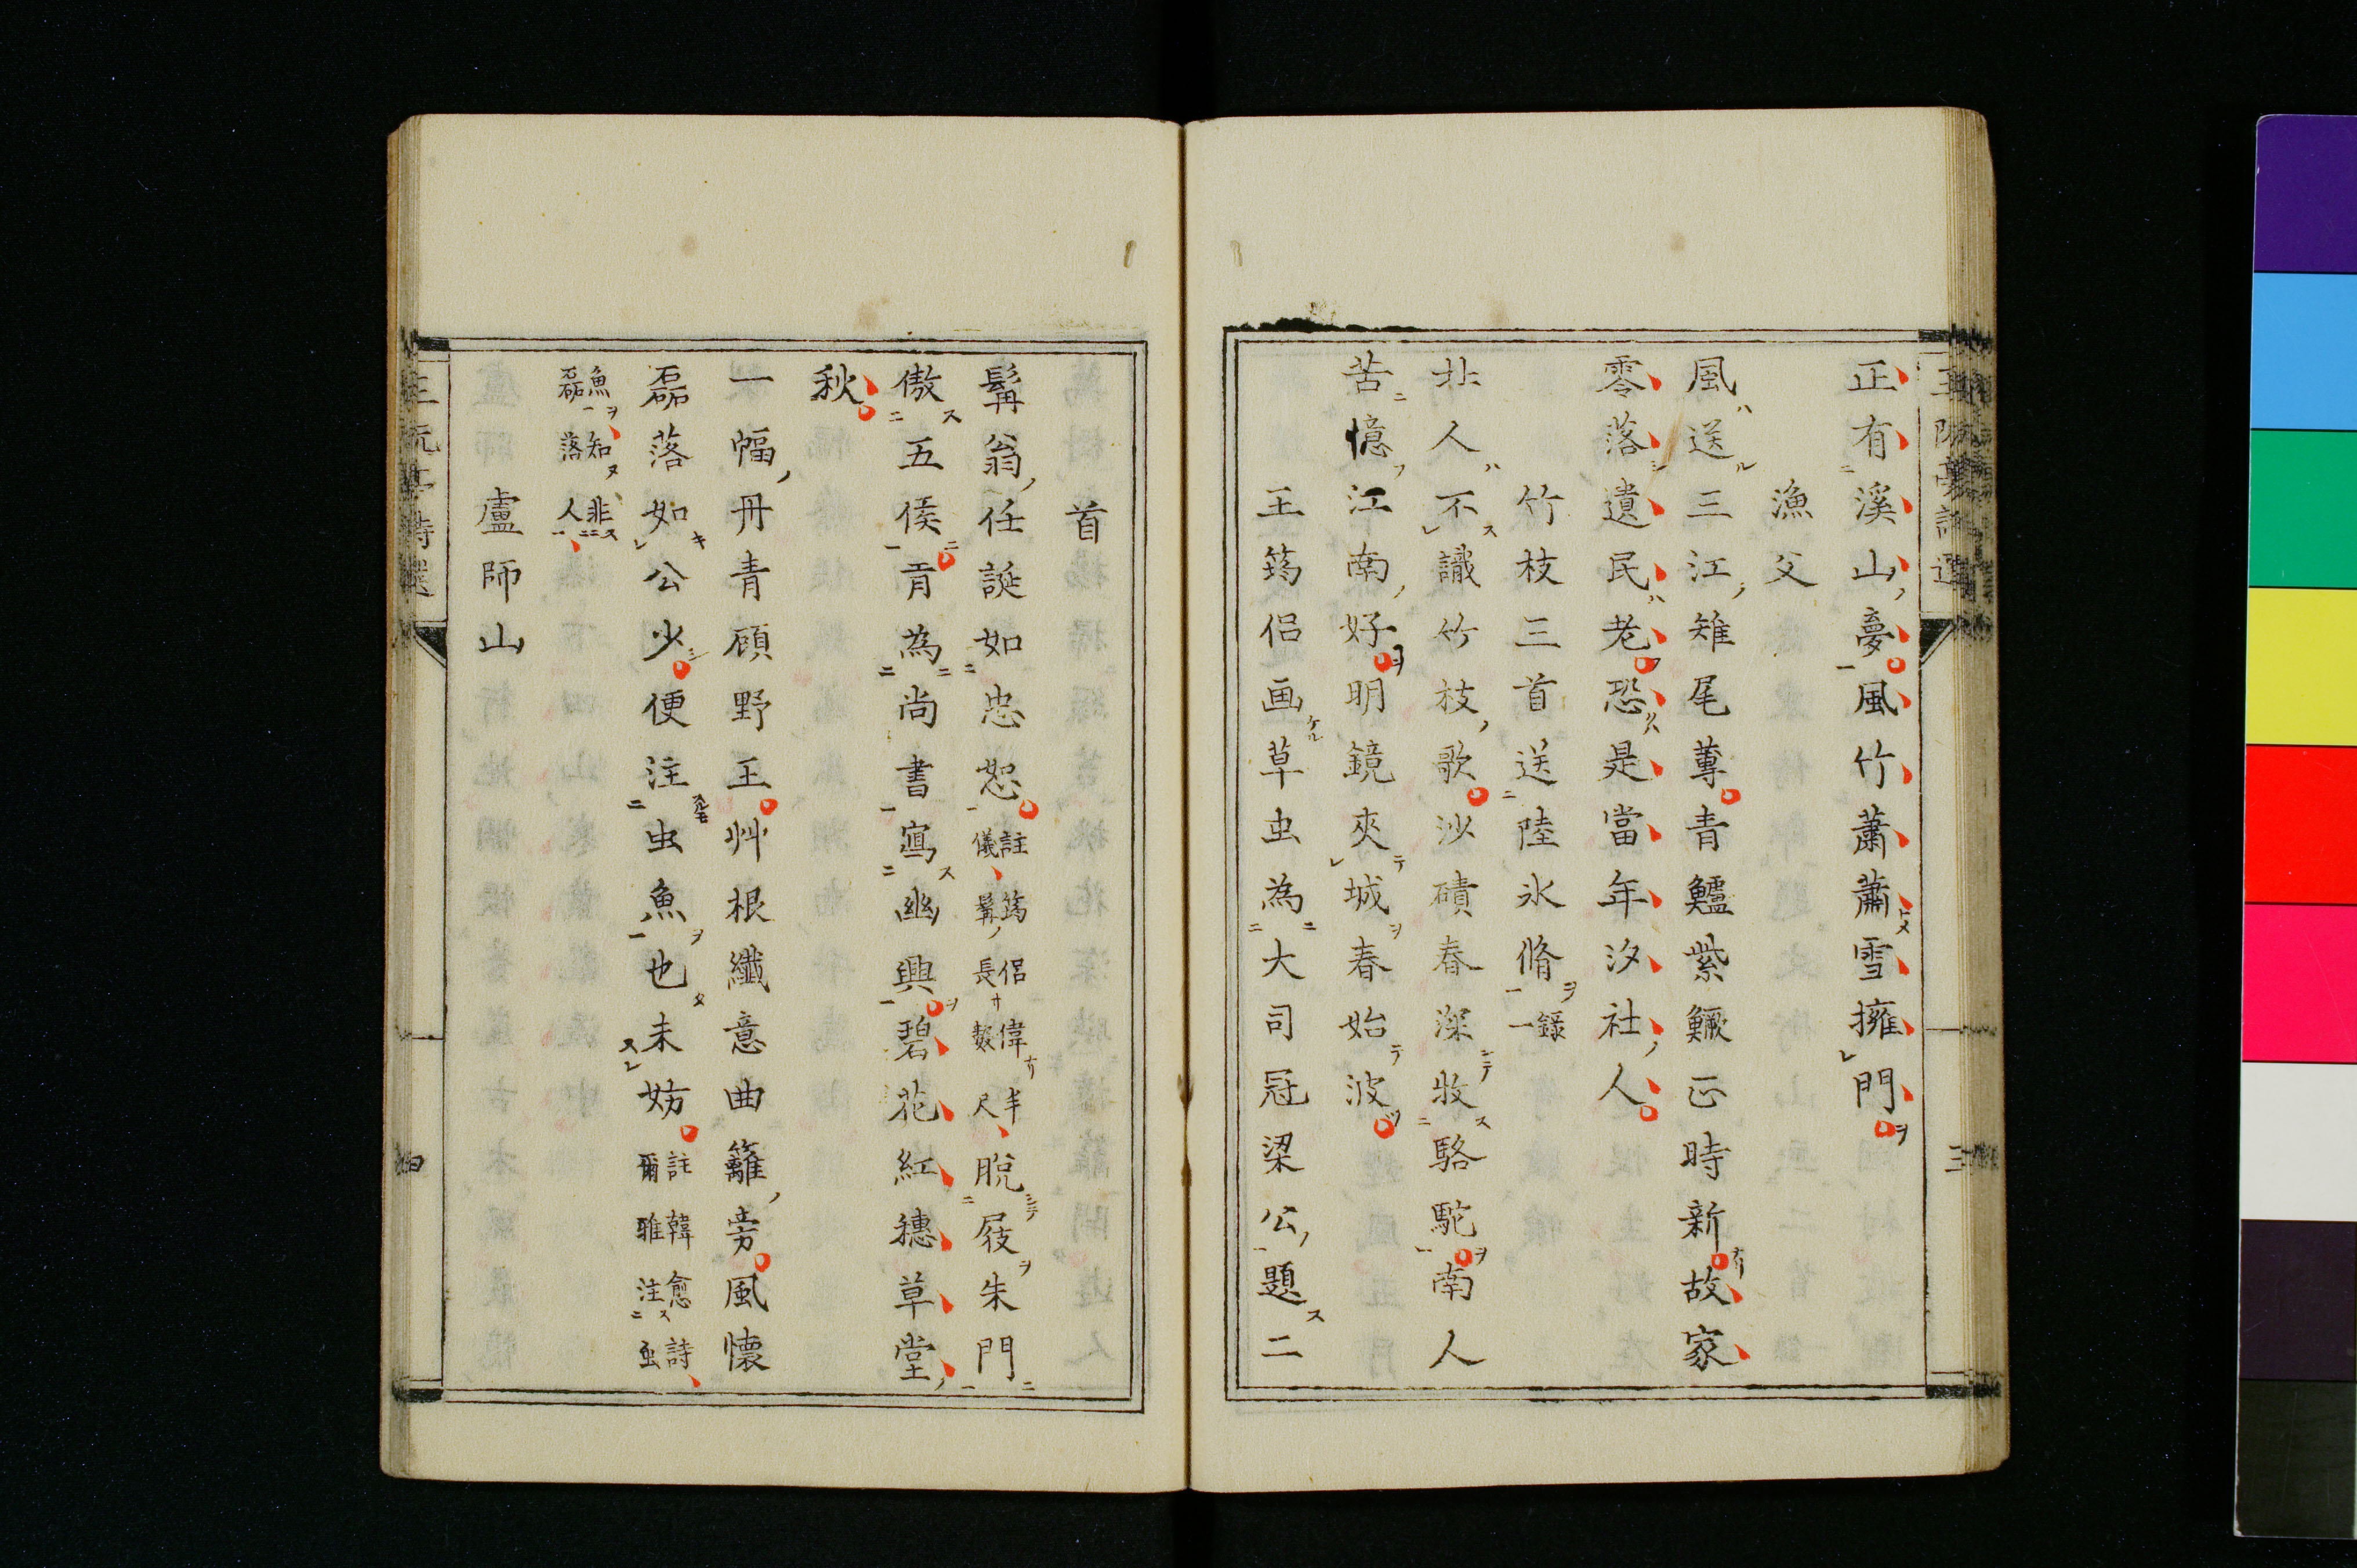 正有溪山夢風竹蕭蕭雪擁門
漁父
風送三江雉尾蓴青鱸紫鱖正時新故家
零落遺民老恐是當年汐社人
竹枝三首送陸氷脩 錄一
北人不識竹枝歌沙磧春深牧駱駝南人
苦憶江南好明鏡夾城春始波
王筠侶画草虫為大司冠梁公題二
三
首
髯翁任誕如忠恕 註筠侶偉半儀髯長數尺 脫屐朱門
傲五侯肯為尚書寫幽興碧花紅穗草堂
秋
一幅丹青顧野王艸根纖意曲籬旁風懷
磊落如公少便注虫魚也未妨 註韓愈詩爾雅注虫
魚知非磊落人
盧師山
王阮亭詩選
四